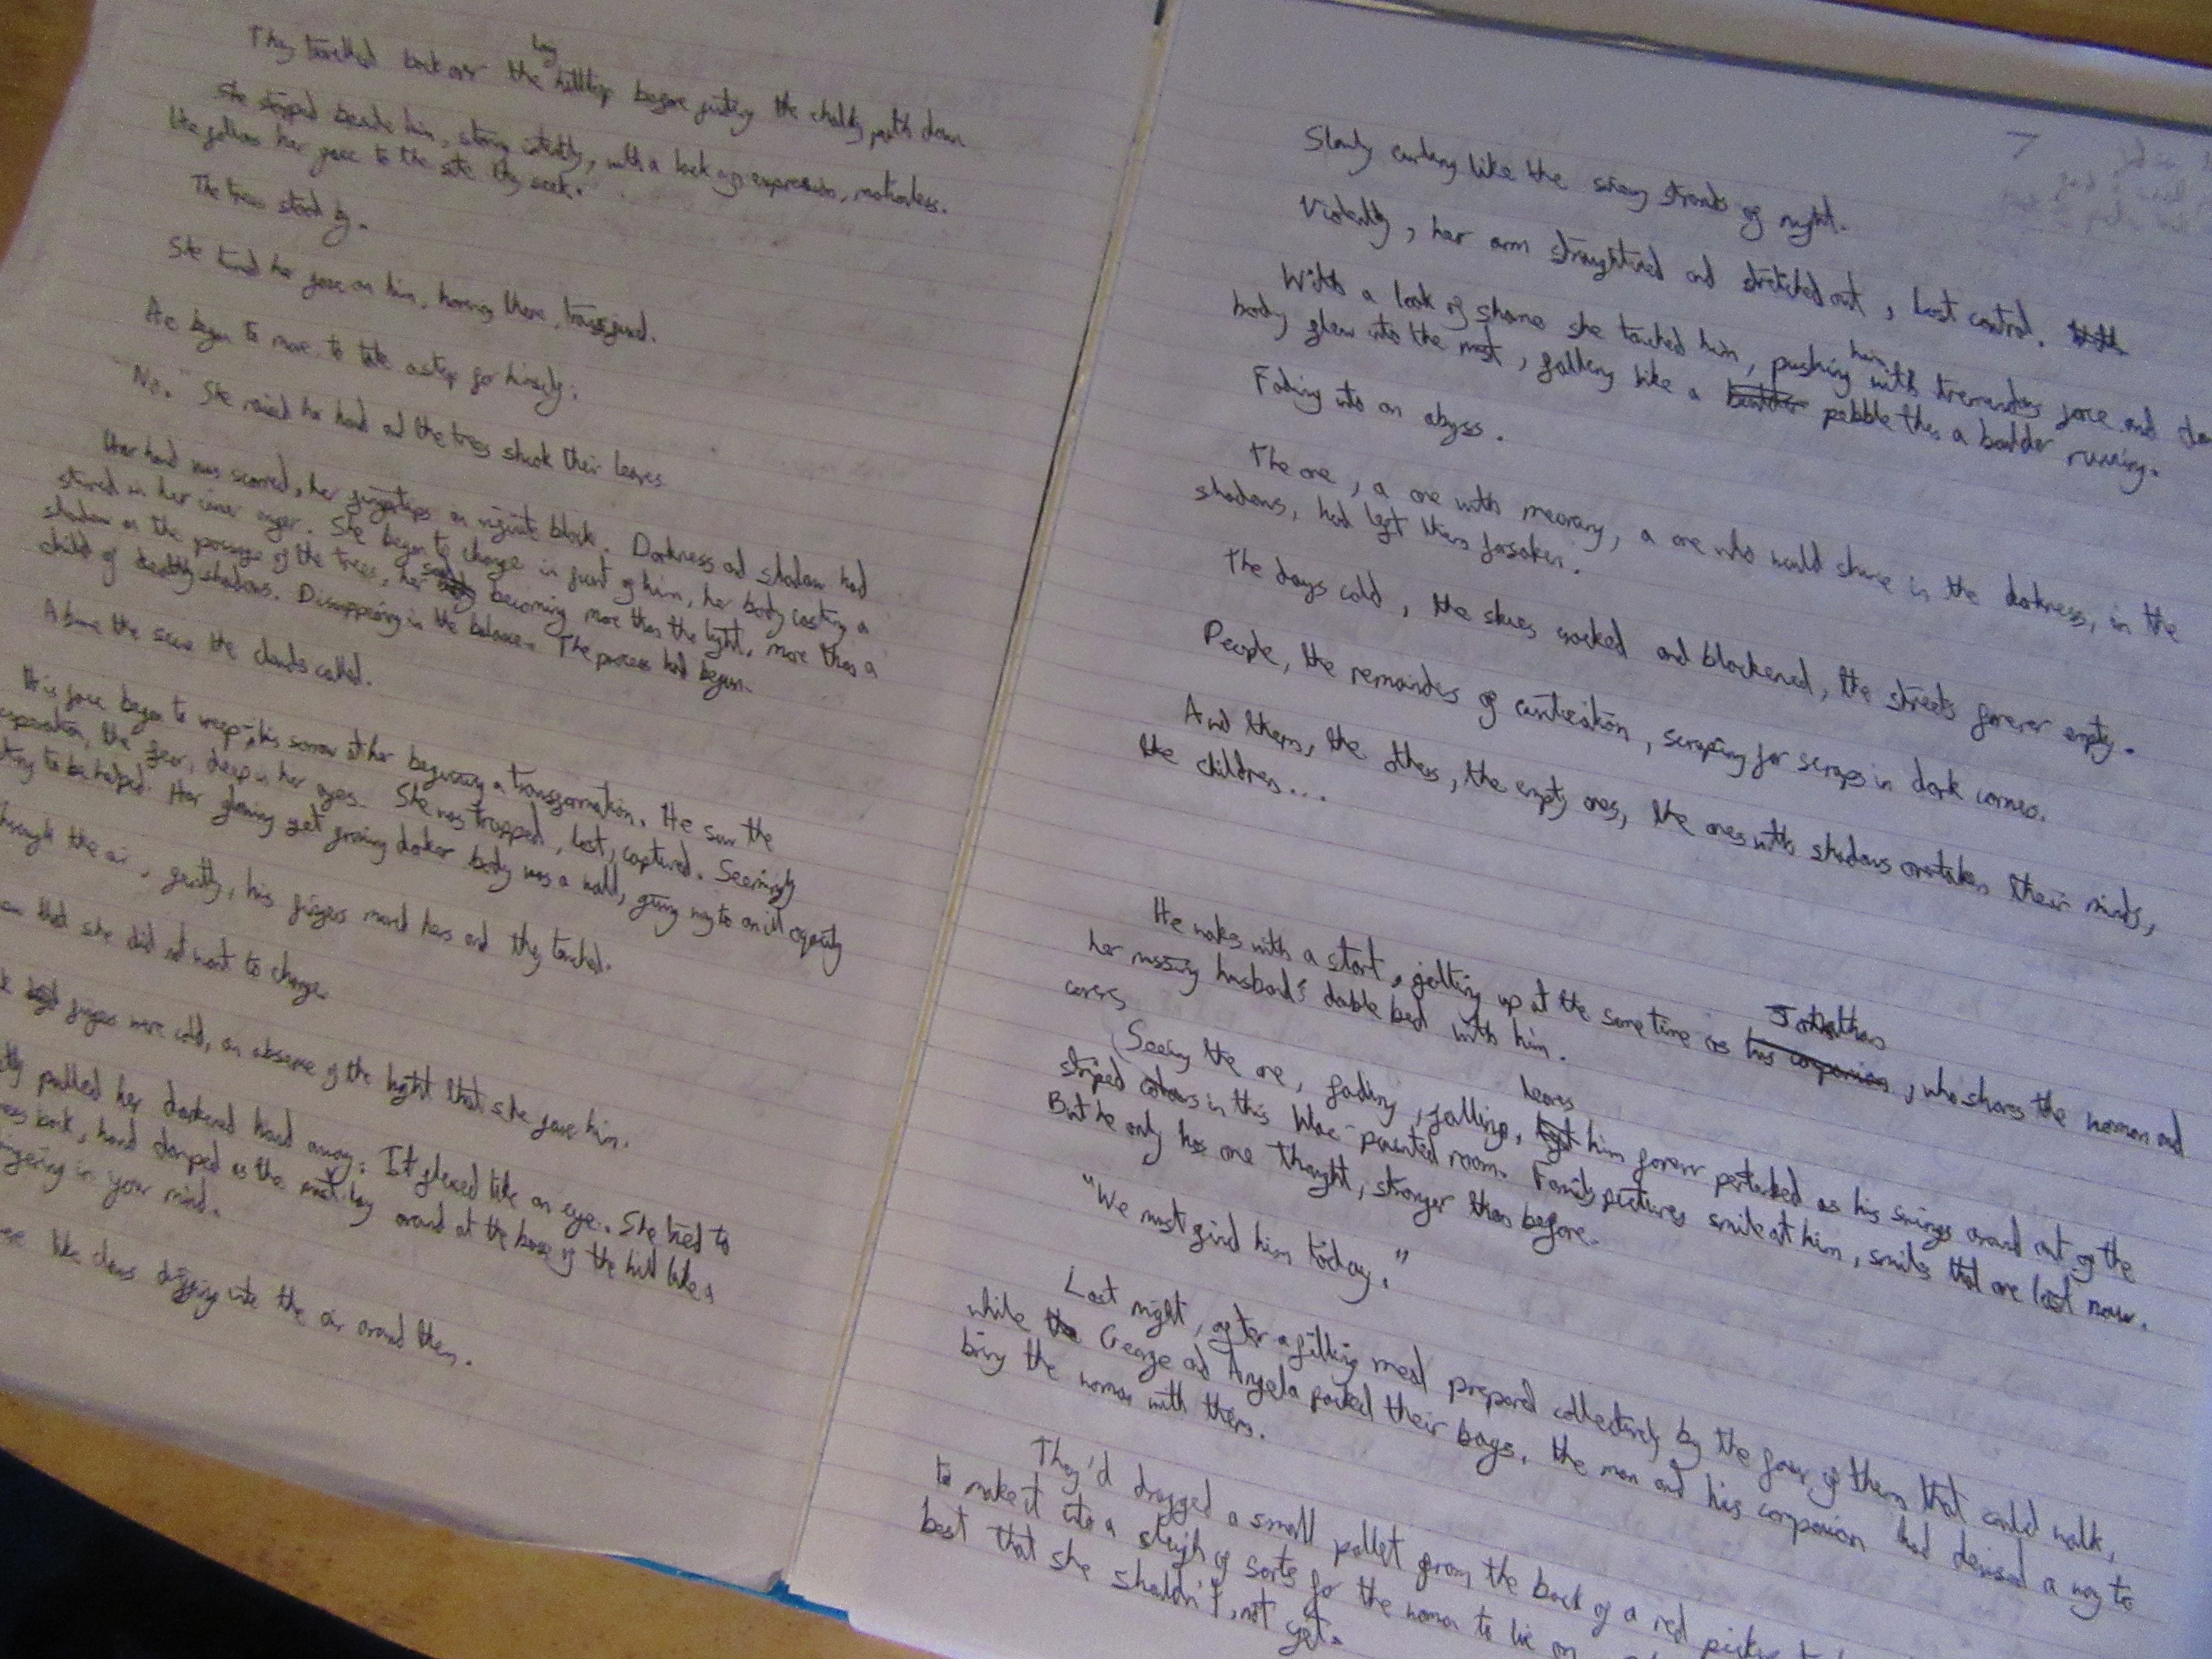 They travelled back over the long hilltop before joining the chalky path down
She stopped beside him, staring intently, with a lack of expression, motionless.
He follows her gaze to the site they seek.
The trees stood by.
She turned her gaze on him, hovering there, transfixed.
He began to move, to take a step for himself.
"No." She raised her hand and the trees shook their leaves
Her hand was scarred, her fingertips an infinite black. Darkness and shadow had
stirred in her inner anger. She began to change in front of him, her body casting a
shadow on the passage of the trees, her becoming more than the light, more than a
child of deathly shadows. Disappearing in the balance. The process had begun.
Above the scene the clouds called.
His face began to weep, his sorrow at her beginning a transformation. He saw the
the fear, deep in her eyes. She was trapped, lost, captured. Seemingly
to be helped. Her glowing yet growing darker body was a wall, giving way to an ill opacity
through the air, gently, his fingers moved hers and they touched.
that she did not want to change
fingers were cold, an absence of the light that she gave him.
pulled her darkened hand away. It flexed like an eye. She tried to
back, hand clamped as the mist lay around at the base of the hill like a
lingering in your mind.
like claws digging into the air around them.
7
Slowly curling like the strong strands of night.
Violently, her arm straightened and stretched out, lost control.
With a look of shame she touched him, pushing him with tremendous force and
body flew into the mist, falling like a boulder pebble then a boulder running.
Fading into an abyss.
The one, a one with memory, a one who would share in the darkness, in the
shadows, had left them forsaken.
The days cold, the skies cracked and blackened, the streets forever empty.
People, the remainders of civilisation, scraping for scraps in dark corners.
And them, the others, the empty ones, the ones with shadows overtaken their minds,
the children...
He wakes with a start, jolting up at the same time as his companion Jonathan, who shares the woman and
her missing husband's double bed with him.
covers
(Seeing the one, fading, falling, leaves him forever perturbed as his swings around out of the
striped colours in this blue-painted room. Family pictures smile at him, smiles that are lost now.
But he only has one thought, stronger than before.
"We must find him today."
Last night, after a filling meal prepared collectively by the four of them that could walk,
while the George and Angela packed their bags, the man and his companion had devised a way to
bring the woman with them.
They'd dragged a small pallet from the back of a red pickup
to make it into a sleigh of sorts for the woman to lie on
best that she shouldn't, not yet.